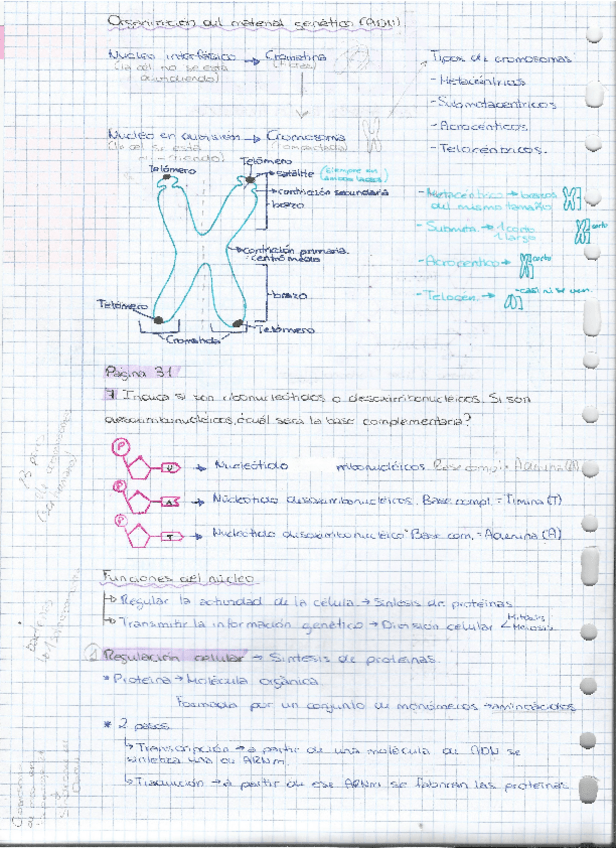 Organización del material genético (ADN)
Núcleo interfásico → Cromatina
(la cel. no se está dividiendo)
Tipos de cromosomas
- Metacéntricos
- Submetacentricos
- Acrocenticos.
- Telocéntricos.
Núcleo en división → Cromosoma
(la cel se está dividiendo)
(compactada)
Telómero
Telómero
satélite
contricción secundaria
brazo
contricción primaria.
centrómero
brazo
Telómero
Telómero
Cromatida
- Metacéntrico → brazos del mismo tamaño
- Submeta. → 1 corto
1 largo
corto
- Acrocentico →
corto
- Telocen. →
casi ni se ven.
Página 31
7 Indica si son ribonucleótidos o desoxirribonucleicos. Si son
desoxirribonucleicos, ¿cuál será la base complementaria?
P U → Nucleótido rribonucléicos. Base compl. = Adenina (A)
P A → Núcleotido desoxirribonucleicos. Base compl. = Timina (T)
P T → Nucleotido desoxirribonucleico Base com. = Adenina (A)
Funciones del núcleo
→ Regular la actividad de la célula → Síntesis de proteínas
→ Transmitir la información genético → División celular < Mitosis
Meiosis
1 Regulación celular → Síntesis de proteínas.
* Proteína → Molécula orgánica
Formada por un conjunto de monómeros → aminoácidos
* 2 pasos
↳ Transcripción → a partir de una molécula de ADN se
sintetiza una de ARNm.
↳ Traducción → a partir de ese ARNm se fabrican las proteínas.
23 pares